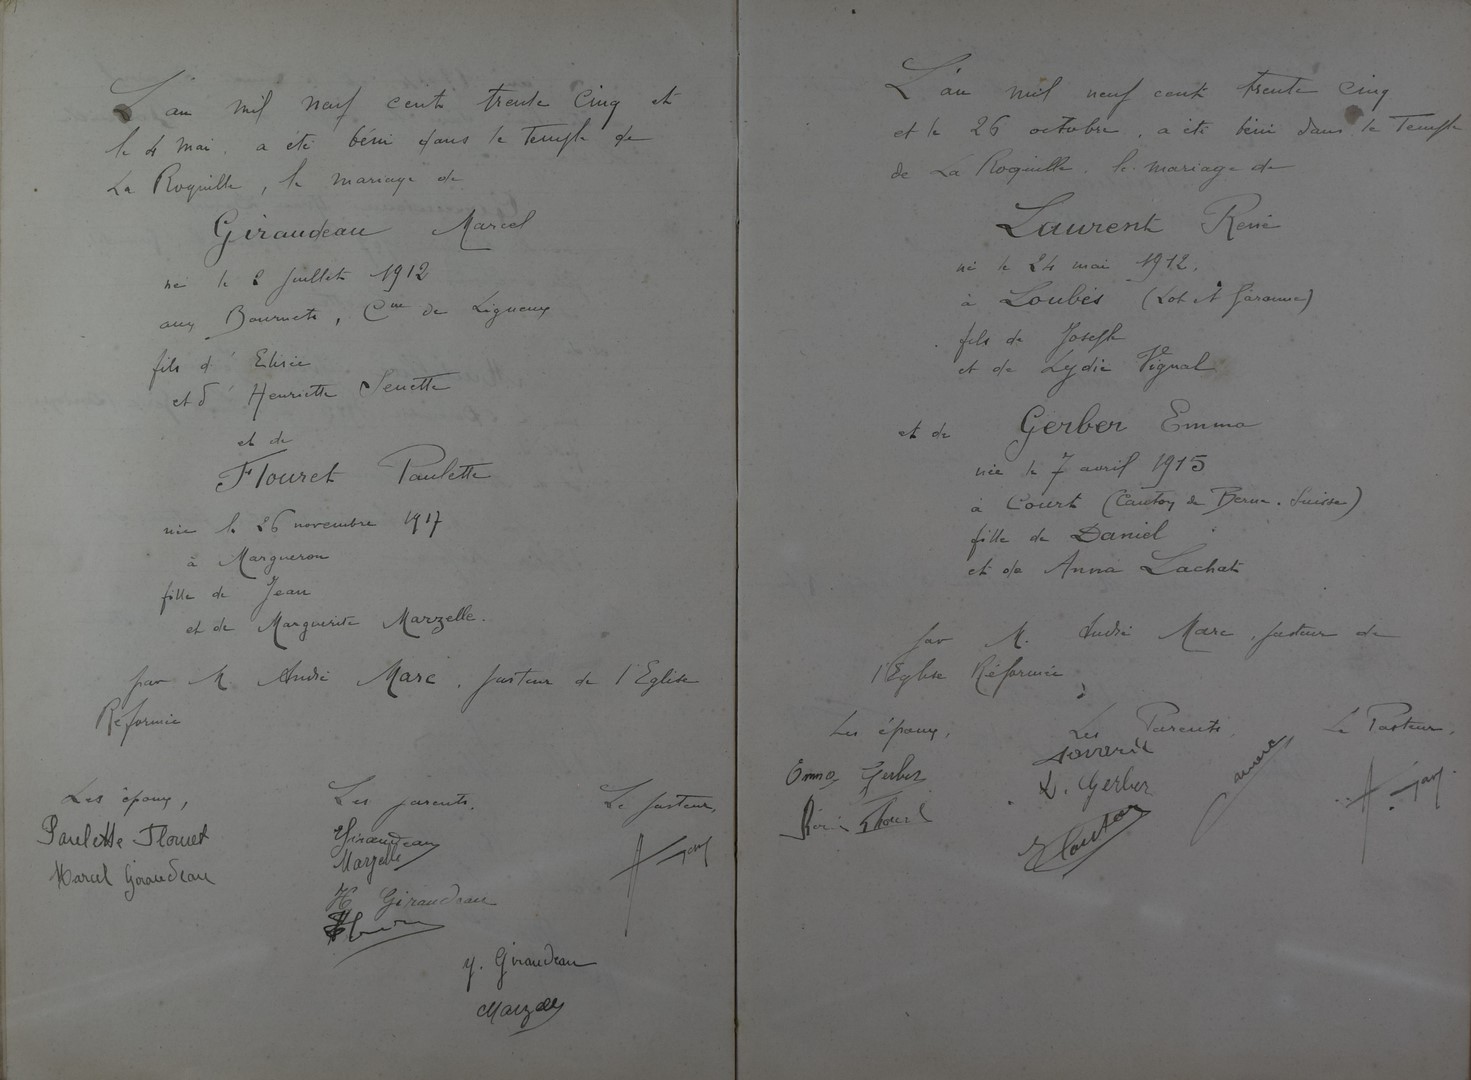 L'an mil neuf cent trente cinq et
le 4 mai, a été béni dans le Temple de
La Roquille, le mariage de
Giraudeau Marcel
né le 2 juillet 1912
aux Bournets, Cne de Ligueux
fils d'Elisée
et d'Henriette
et de
Flouret Paulette
née le 26 novembre 1917
à Margueron
fille de Jean
et de Marguerite Marzelle.
par M. André Marc, pasteur de l'Eglise
Réformée
Les époux, Les parents, Le pasteur,
Paulette Flouret Giraudeau
Marcel Giraudeau Marzelle
H Giraudeau
Y. Giraudeau
L'an mil neuf cent trente cinq
et le 26 octobre, a été béni dans le Temple
de La Roquille, le mariage de
Laurent René
né le 24 mai 1912,
à Loubès (Lot et Garonne)
fils de Joseph
et de Lydie Vignal
et de Gerber Emma
née le 7 avril 1915
à Court (Canton de Berne. Suisse)
fille de Daniel
et de Anna Lachat
par M. André Marc, pasteur de
l'Eglise Réformée
Les époux, Les Parents, Le Pasteur,
Emma Gerber D. Gerber